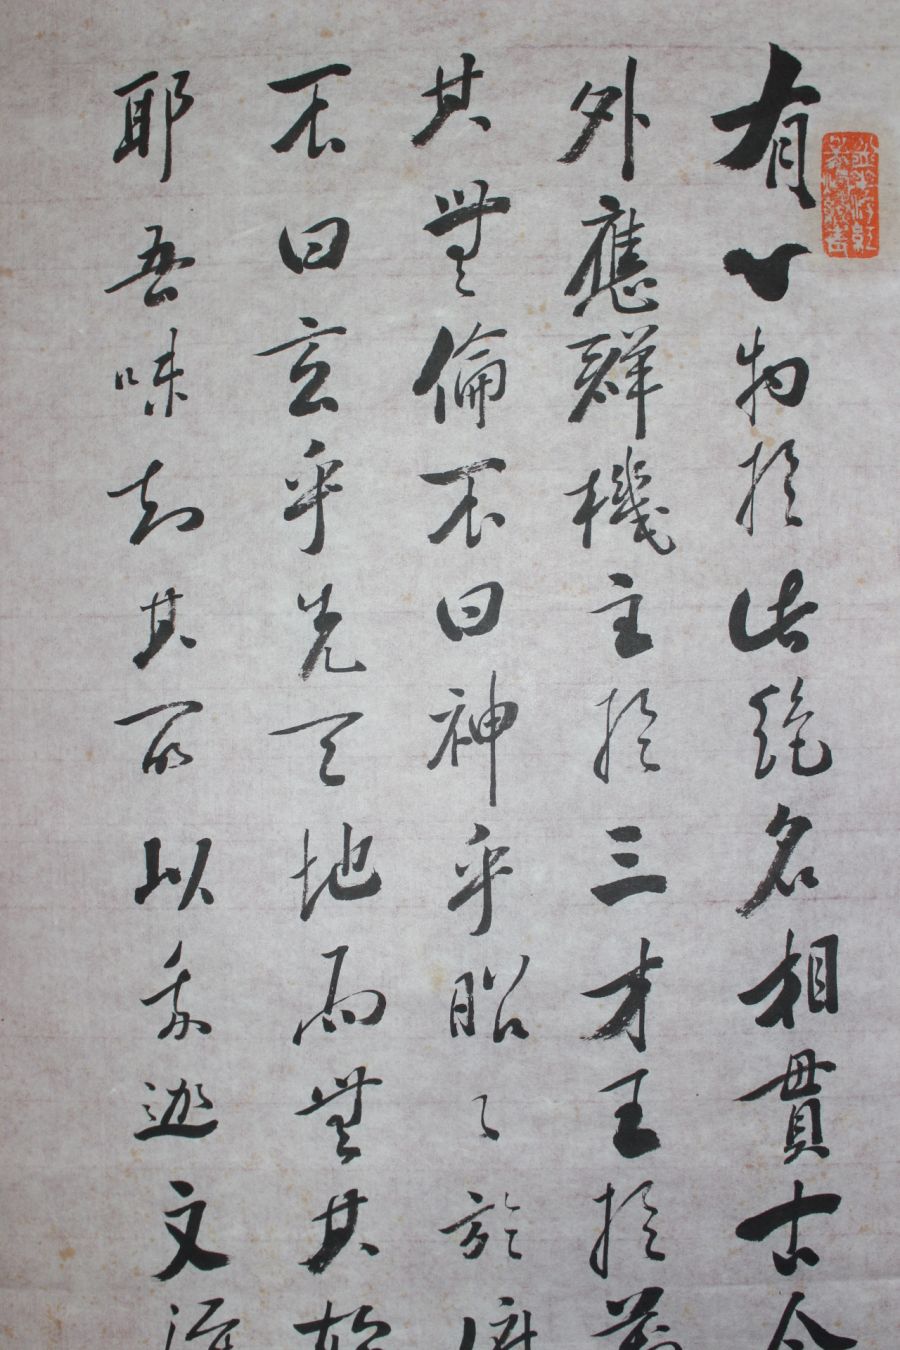 有一物於此絶名相貫古今
外應群機主於三才王於萬
其無倫不曰神乎昭々於俯
不曰玄乎先天地而無其始
耶吾味知其所以我迦文得